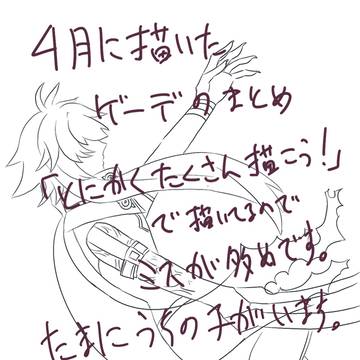 4月に描いた
ゲーデのまとめ
「とにかくたくさん描こう！」
で描いてるので
ミスが多めです。
たまにうちの子がいます。